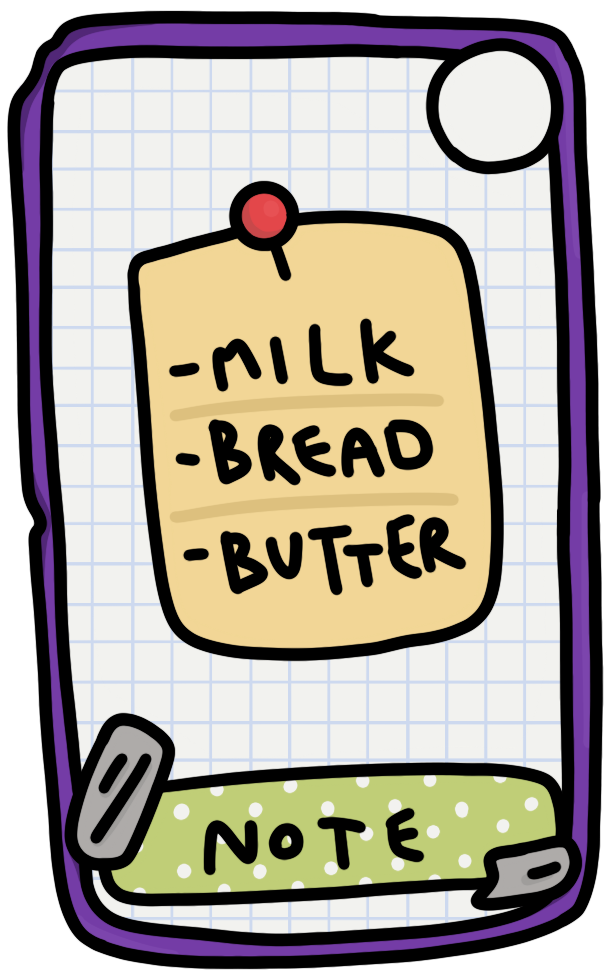 -MILK
-BREAD
-BUTTER
NOTE